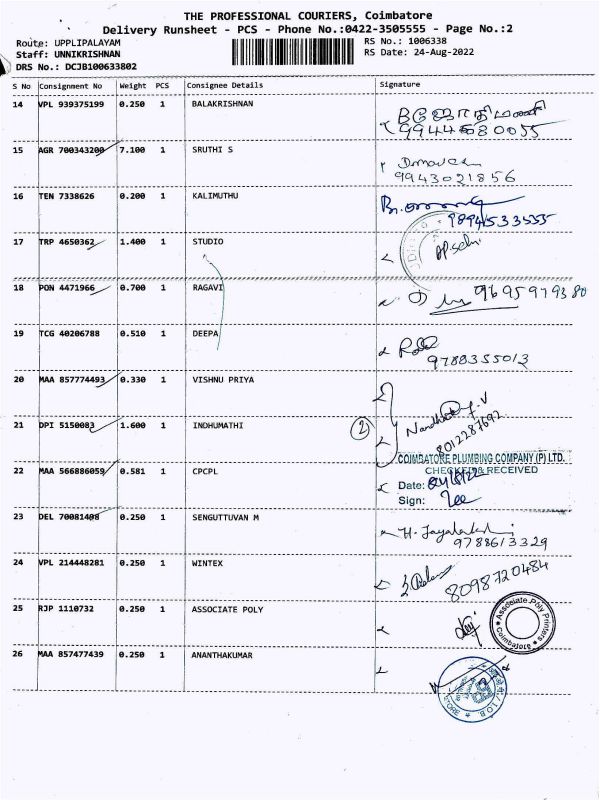 THE PROFESSIONAL COURIERS, Coimbatore
Delivery Runsheet - PCS - Phone No.:0422-3505555 - Page No.:2
Route: UPPLIPALAYAM
RS No.: 1006338
Staff: UNNIKRISHNAN
RS Date: 24-Aug-2022
DRS No.: DCJB100633802
S No Consignment No Weight PCS Consignee Details Signature
14 VPL 939375199 0.250 1 BALAKRISHNAN
15 AGR 700343200 7.100 1 SRUTHI S
9943021856
16 TEN 7338626 0.200 1 KALIMUTHU
9894533555
17 TRP 4650362 1.400 1 STUDIO
18 PON 4471966 0.700 1 RAGAVI
9695979380
19 TCG 40206788 0.510 1 DEEPA
9788355013
20 MAA 857774493 0.330 1 VISHNU PRIYA
21 DPI 5150083 1.600 1 INDHUMATHI
2
8012287692
COIMBATORE PLUMBING COMPANY (P) LTD.
CHECKED & RECEIVED
22 MAA 566886059 0.581 1 CPCPL
Date:
Sign:
23 DEL 70081408 0.250 1 SENGUTTUVAN M
9788613329
24 VPL 214448281 0.250 1 WINTEX
8098720484
25 RJP 1110732 0.250 1 ASSOCIATE POLY
Associate Poly Printers
Coimbatore
26 MAA 857477439 0.250 1 ANANTHAKUMAR